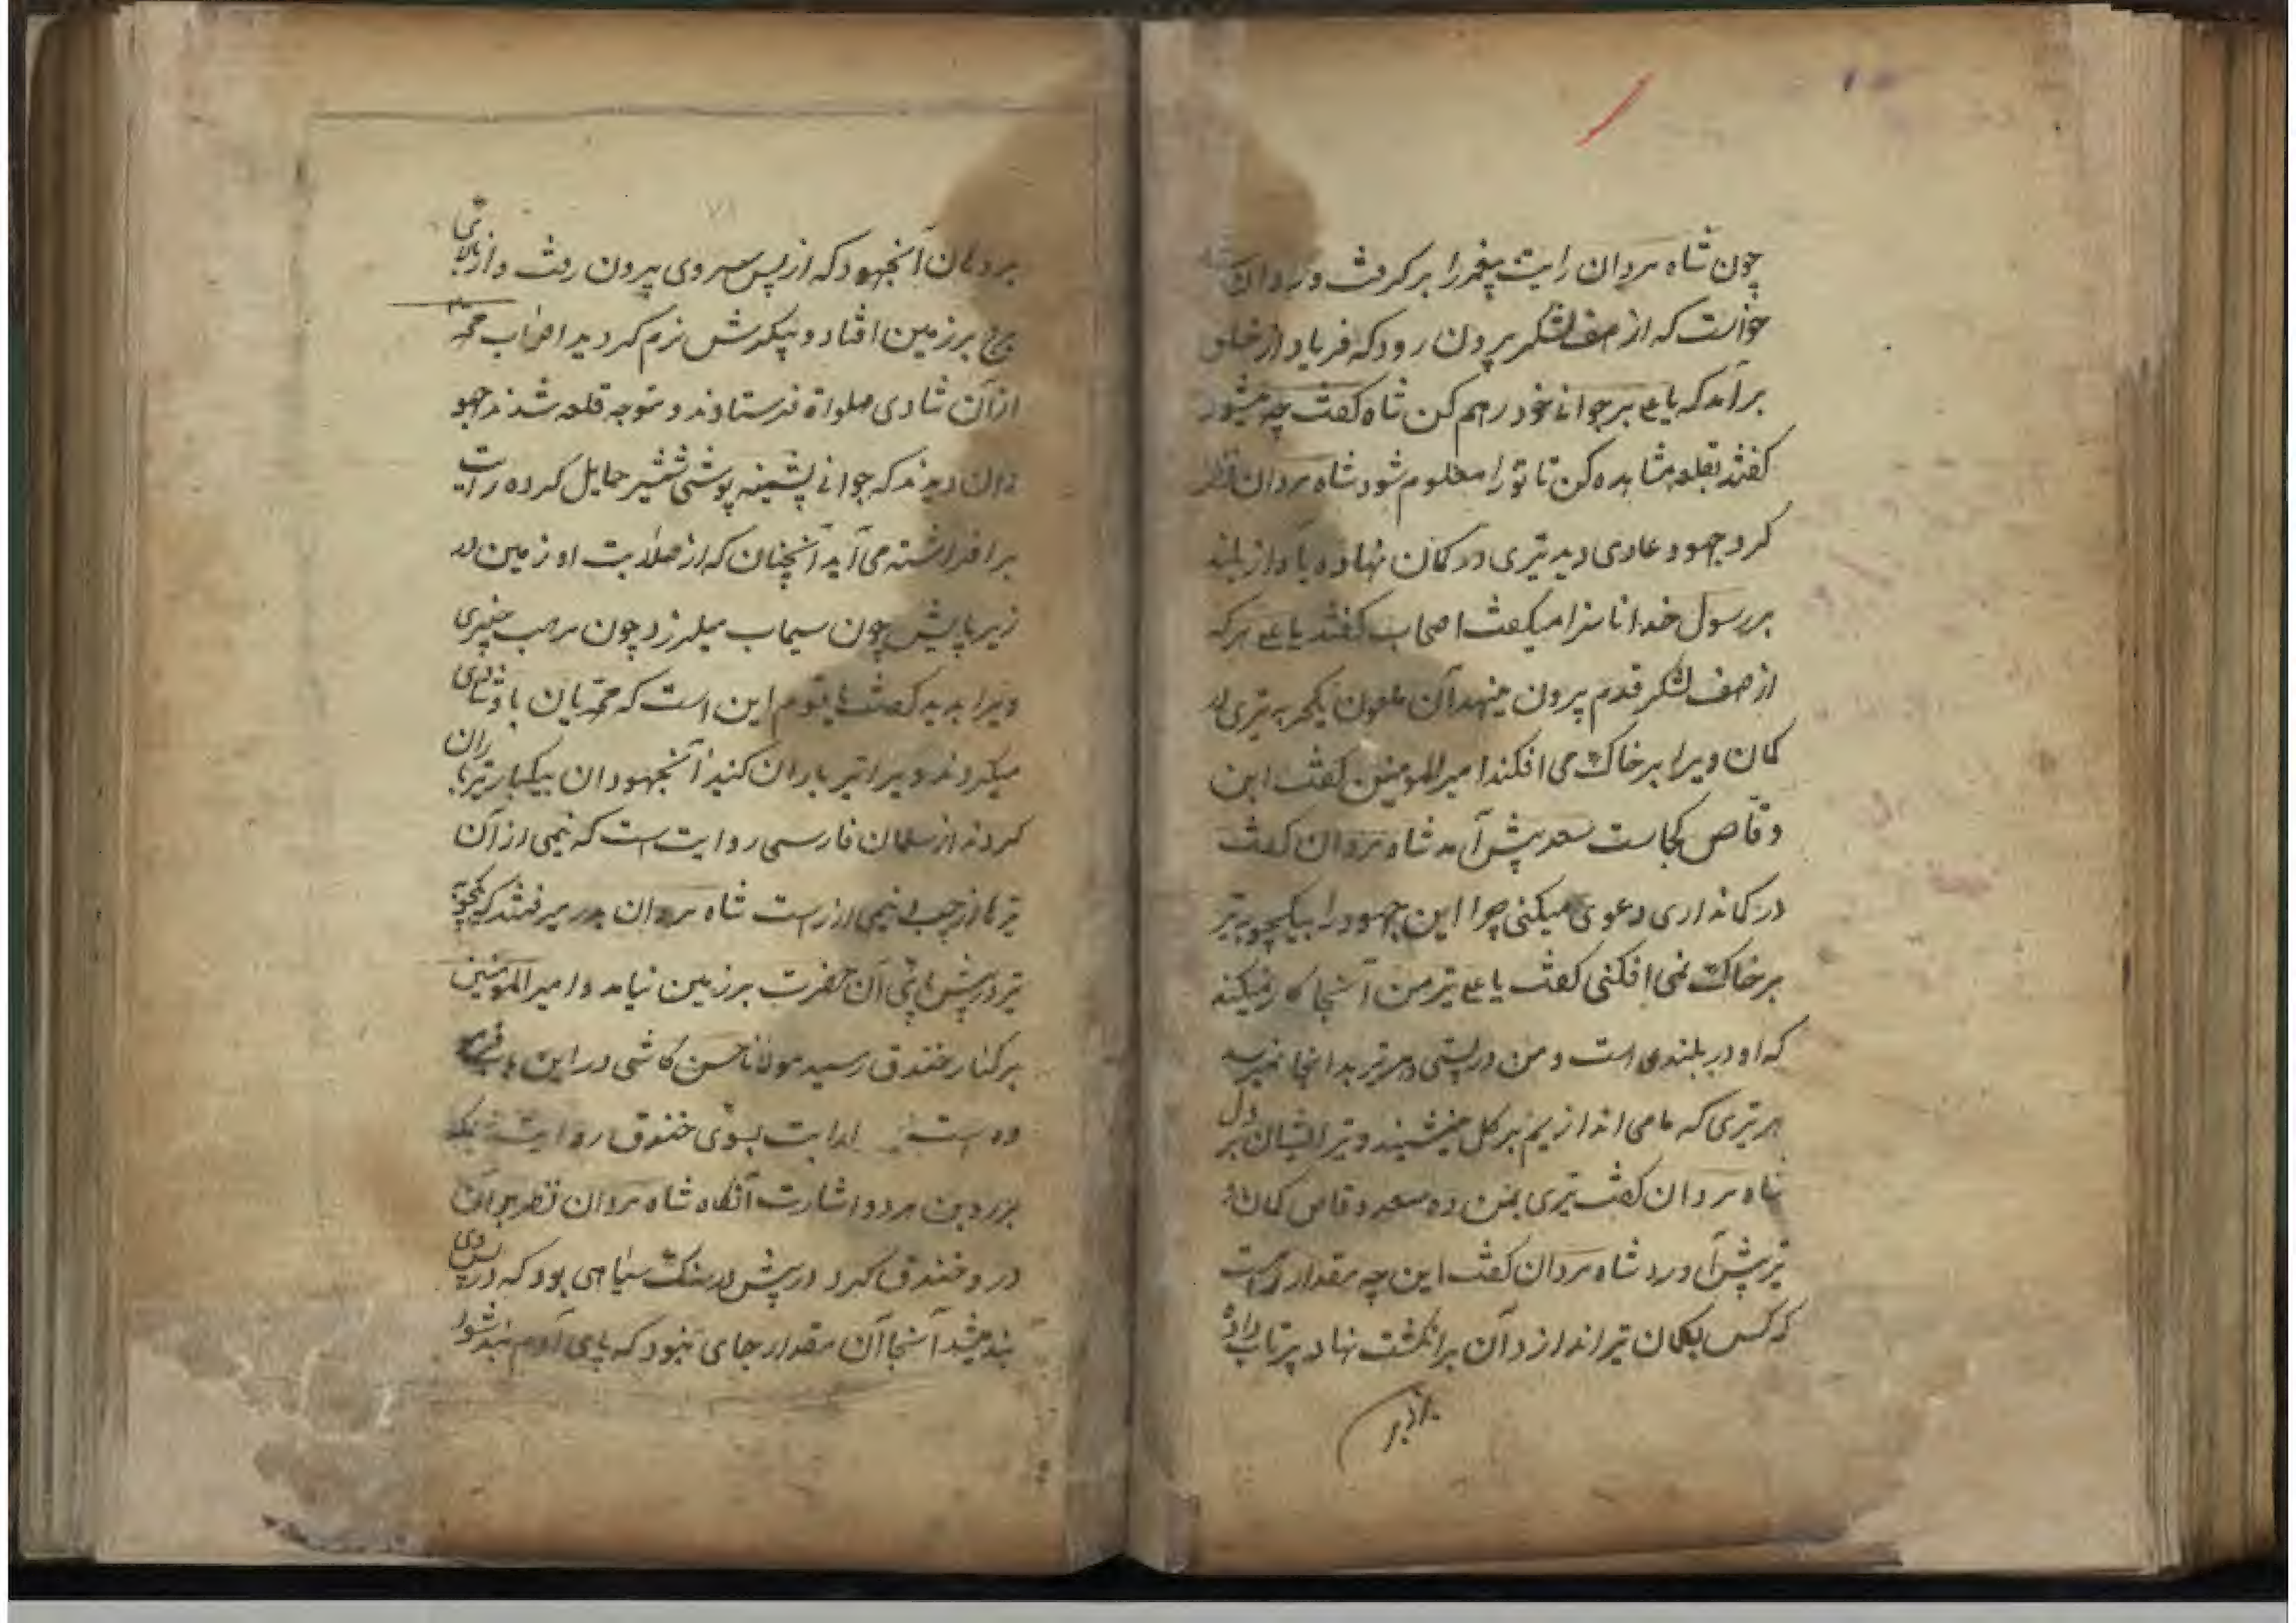 چون شاه مردان رایت پیغمبر را بر گرفت و روان
خواست که از صف لشکر بیرون رود که فریاد از خلق
برآمد که یا علی بر جوانی خود رحم کن شاه گفت چه میشود
گفتند بقلعه مشاهده کن تا تو را معلوم شود شاه مردان نظر
کرد جهود عادی دید تیری در کمان نهاده بآواز بلند
بر رسول خدا ناسزا میگفت اصحاب گفتند یا علی هر که
از صف لشکر قدم بیرون مینهد آن ملعون بیکچوبه تیری از
کمان ویرا بر خاک می افکند امیرالمومنین گفت ابن
وقاص کجاست سعد پیش آمد شاه مردان گفت
در کمانداری دعوی میکنی چرا این جهود را بیکچوبه تیر
بر خاک نمی افکنی گفت یا علی تیر من آنجا کار نمیکند
که او در بلندی است و من در پستی و هر تیر بدانجا نمیرسد
هر تیری که ما می اندازیم بر گل مینشیند و تیر ایشان بر دل
شاه مردان گفت تیری بمن ده سعد وقاص کمان و
تیر پیش آورد شاه مردان گفت این چه مقدار راه است
که کس بکمان تیر اندازد آن بر انگشت نهاد پرتاب داد
بر دهان آنجهود که از پس سر وی بیرون رفت و از بالای
برج بر زمین افتاد و پیکرش نرم گردید اصحاب محمد
از آن شادی صلواة فرستادند و متوجه قلعه شدند جهو
دان دیدند که جوانی پشمینه پوشی شمشیر حمایل کرده رایت
بر افراشته می آید آنچنان که از صلابت او زمین در
زیر پایش چون سیماب میلرزد چون مرحب خیبری
ویرا بدید گفت یا قوم این است که محمدیان با و شادی
میکردند ویرا تیر باران کنید آنجهودان بیکبار تیر باران
کردند از سلمان فارسی روایت است که نیمی از آن
تیرها از چپ و نیمی از راست شاه مردان بدر میرفتند که یکچوبه
تیر در پیش پای آن حضرت بر زمین نیامد و امیرالمومنین
بر کنار خندق رسید مولانا حسن کاشی در این باب فرمو
ده است بسوی خندق
آنگاه شاه مردان نظر بر آن
در و خندق کرد در پیش در سنگ سیاهی بود که در پس وی
بند میشد آنجا آن مقدار جای نبود که پای آدم بند شود